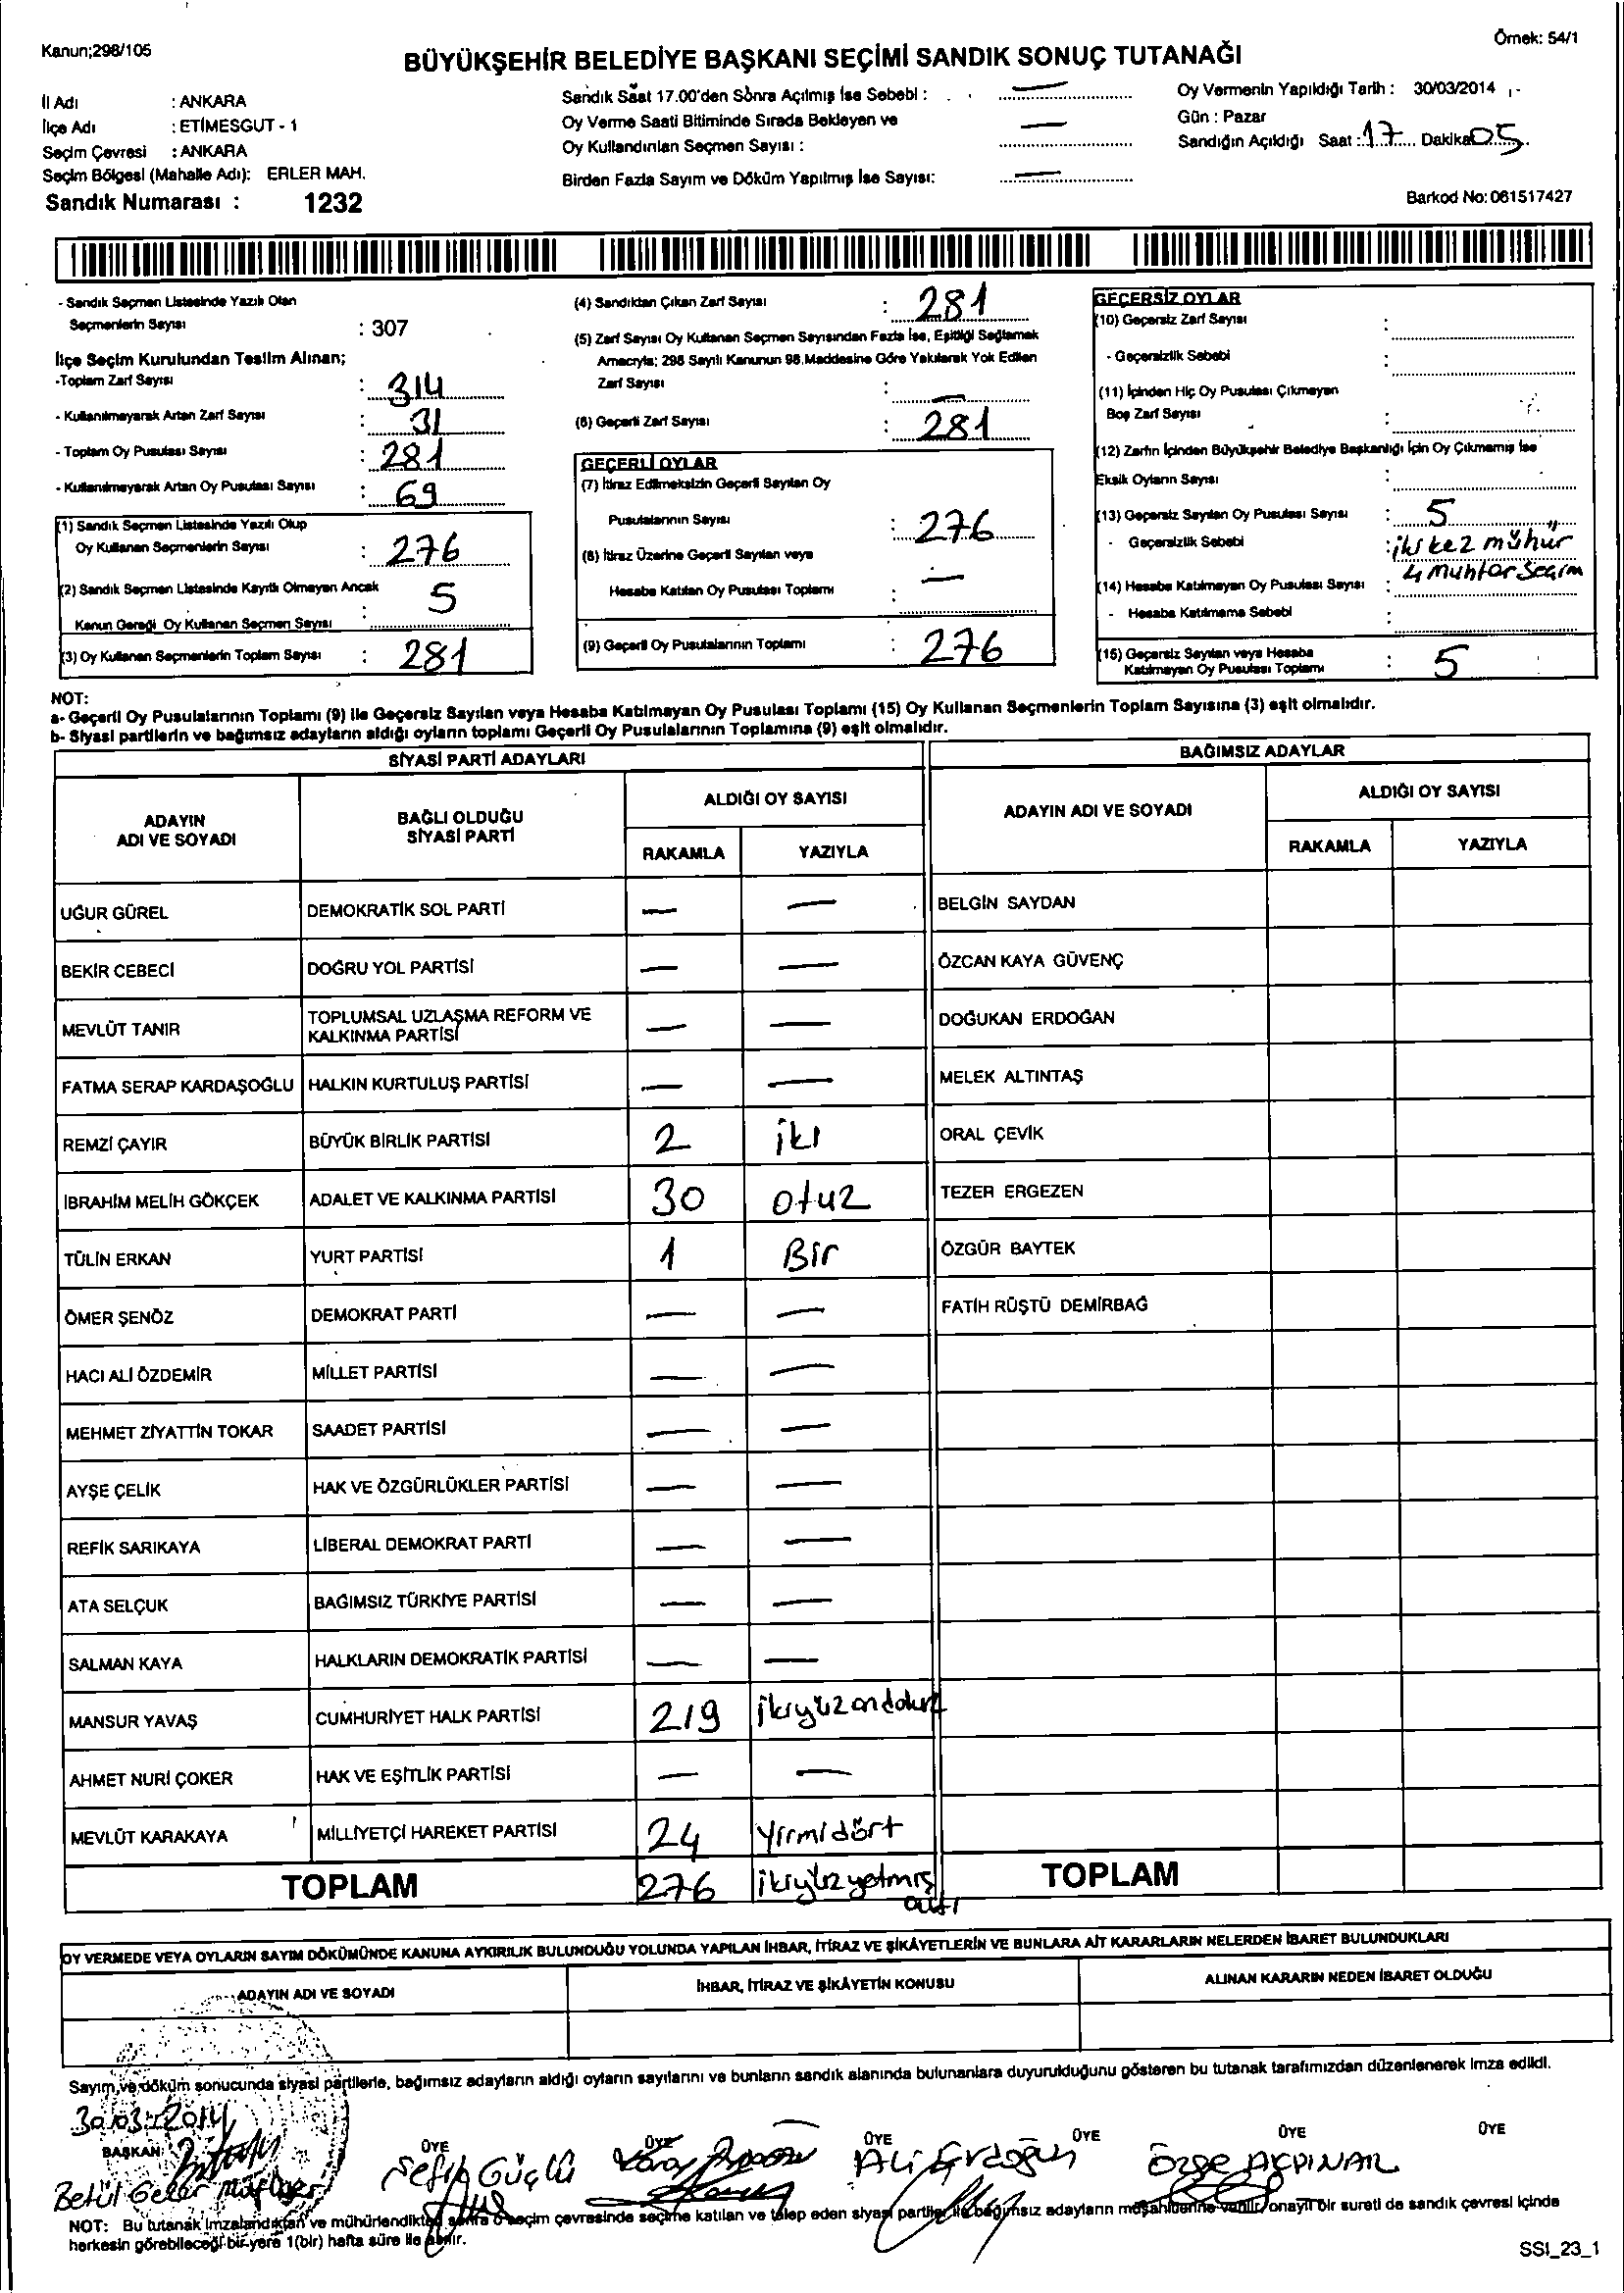 Kanun;298/105
Örnek: 54/1
BÜYÜKŞEHİR BELEDİYE BAŞKANI SEÇİMİ SANDIK SONUÇ TUTANAĞI
İl Adı : ANKARA
İlçe Adı : ETİMESGUT - 1
Seçim Çevresi : ANKARA
Seçim Bölgesi (Mahalle Adı): ERLER MAH.
Sandık Numarası : 1232
Sandık Saat 17.00'den Sonra Açılmış İse Sebebi : —
Oy Verme Saati Bitiminde Sırada Bekleyen ve
Oy Kullandırılan Seçmen Sayısı : —
Birden Fazla Sayım ve Döküm Yapılmış İse Sayısı: —
Oy Vermenin Yapıldığı Tarih : 30/03/2014
Gün : Pazar
Sandığın Açıldığı Saat : 17 Dakika 05
Barkod No: 061517427
- Sandık Seçmen Listesinde Yazılı Olan
Seçmenlerin Sayısı : 307
İlçe Seçim Kurulundan Teslim Alınan;
-Toplam Zarf Sayısı : 314
- Kullanılmayarak Artan Zarf Sayısı : 31
- Toplam Oy Pusulası Sayısı : 281
- Kullanılmayarak Artan Oy Pusulası Sayısı : 69
(1) Sandık Seçmen Listesinde Yazılı Olup
Oy Kullanan Seçmenlerin Sayısı : 276
(2) Sandık Seçmen Listesinde Kayıtlı Olmayan Ancak
Kanun Gereği Oy Kullanan Seçmen Sayısı : 5
(3) Oy Kullanan Seçmenlerin Toplam Sayısı : 281
(4) Sandıktan Çıkan Zarf Sayısı : 281
(5) Zarf Sayısı Oy Kullanan Seçmen Sayısından Fazla İse, Eşitliği Sağlamak
Amacıyla; 298 Sayılı Kanunun 98.Maddesine Göre Yakılarak Yok Edilen
Zarf Sayısı : —
(6) Geçerli Zarf Sayısı : 281
GEÇERLİ OYLAR
(7) İtiraz Edilmeksizin Geçerli Sayılan Oy
Pusulalarının Sayısı : 276
(8) İtiraz Üzerine Geçerli Sayılan veya
Hesaba Katılan Oy Pusulası Toplamı : —
(9) Geçerli Oy Pusulalarının Toplamı : 276
GEÇERSİZ OYLAR
(10) Geçersiz Zarf Sayısı :
- Geçersizlik Sebebi :
(11) İçinden Hiç Oy Pusulası Çıkmayan
Boş Zarf Sayısı :
(12) Zarfın İçinden Büyükşehir Belediye Başkanlığı İçin Oy Çıkmamış İse
Eksik Oyların Sayısı :
(13) Geçersiz Sayılan Oy Pusulası Sayısı : 5
- Geçersizlik Sebebi : iki kez mühür
4 muhtar seçim
(14) Hesaba Katılmayan Oy Pusulası Sayısı :
- Hesaba Katılmama Sebebi :
(15) Geçersiz Sayılan veya Hesaba
Katılmayan Oy Pusulası Toplamı : 5
NOT:
a- Geçerli Oy Pusulalarının Toplamı (9) ile Geçersiz Sayılan veya Hesaba Katılmayan Oy Pusulası Toplamı (15) Oy Kullanan Seçmenlerin Toplam Sayısına (3) eşit olmalıdır.
b- Siyasi partilerin ve bağımsız adayların aldığı oyların toplamı Geçerli Oy Pusulalarının Toplamına (9) eşit olmalıdır.
SİYASİ PARTİ ADAYLARI BAĞIMSIZ ADAYLAR
ADAYIN ADI VE SOYADI BAĞLI OLDUĞU SİYASİ PARTİ ALDIĞI OY SAYISI ADAYIN ADI VE SOYADI ALDIĞI OY SAYISI
RAKAMLA YAZIYLA RAKAMLA YAZIYLA
UĞUR GÜREL DEMOKRATİK SOL PARTİ — — BELGİN SAYDAN
BEKİR CEBECİ DOĞRU YOL PARTİSİ — — ÖZCAN KAYA GÜVENÇ
MEVLÜT TANIR TOPLUMSAL UZLAŞMA REFORM VE KALKINMA PARTİSİ — — DOĞUKAN ERDOĞAN
FATMA SERAP KARDAŞOĞLU HALKIN KURTULUŞ PARTİSİ — — MELEK ALTINTAŞ
REMZİ ÇAYIR BÜYÜK BİRLİK PARTİSİ 2 iki ORAL ÇEVİK
İBRAHİM MELİH GÖKÇEK ADALET VE KALKINMA PARTİSİ 30 otuz TEZER ERGEZEN
TÜLİN ERKAN YURT PARTİSİ 1 Bir ÖZGÜR BAYTEK
ÖMER ŞENÖZ DEMOKRAT PARTİ — — FATİH RÜŞTÜ DEMİRBAĞ
HACI ALİ ÖZDEMİR MİLLET PARTİSİ — —
MEHMET ZİYATTİN TOKAR SAADET PARTİSİ — —
AYŞE ÇELİK HAK VE ÖZGÜRLÜKLER PARTİSİ — —
REFİK SARIKAYA LİBERAL DEMOKRAT PARTİ — —
ATA SELÇUK BAĞIMSIZ TÜRKİYE PARTİSİ — —
SALMAN KAYA HALKLARIN DEMOKRATİK PARTİSİ — —
MANSUR YAVAŞ CUMHURİYET HALK PARTİSİ 219 ikiyüzondokuz
AHMET NURİ ÇOKER HAK VE EŞİTLİK PARTİSİ — —
MEVLÜT KARAKAYA MİLLİYETÇİ HAREKET PARTİSİ 24 Yirmidört
TOPLAM 276 ikiyüzyetmiş altı TOPLAM
OY VERMEDE VEYA OYLARIN SAYIM DÖKÜMÜNDE KANUNA AYKIRILIK BULUNDUĞU YOLUNDA YAPILAN İHBAR, İTİRAZ VE ŞİKÂYETLERİN VE BUNLARA AİT KARARLARIN NELERDEN İBARET BULUNDUKLARI
ADAYIN ADI VE SOYADI İHBAR, İTİRAZ VE ŞİKÂYETİN KONUSU ALINAN KARARIN NEDEN İBARET OLDUĞU
Sayım ve döküm sonucunda siyasi partilerle, bağımsız adayların aldığı oyların sayılarını ve bunların sandık alanında bulunanlara duyurulduğunu gösteren bu tutanak tarafımızdan düzenlenerek imza edildi.
30.03.2014
BAŞKAN ÜYE ÜYE ÜYE ÜYE ÜYE ÜYE
Betül Nefih Güçlü Ali Erdoğan Özge AKPINAR
NOT: Bu tutanak imzalandıktan ve mühürlendikten sonra o seçim çevresinde seçime katılan ve talep eden siyasi partiler ile bağımsız adayların müşahitlerine verilir, onaylı bir sureti de sandık çevresi içinde
herkesin görebileceği bir yere 1(bir) hafta süre ile asılır.
SSI_23_1